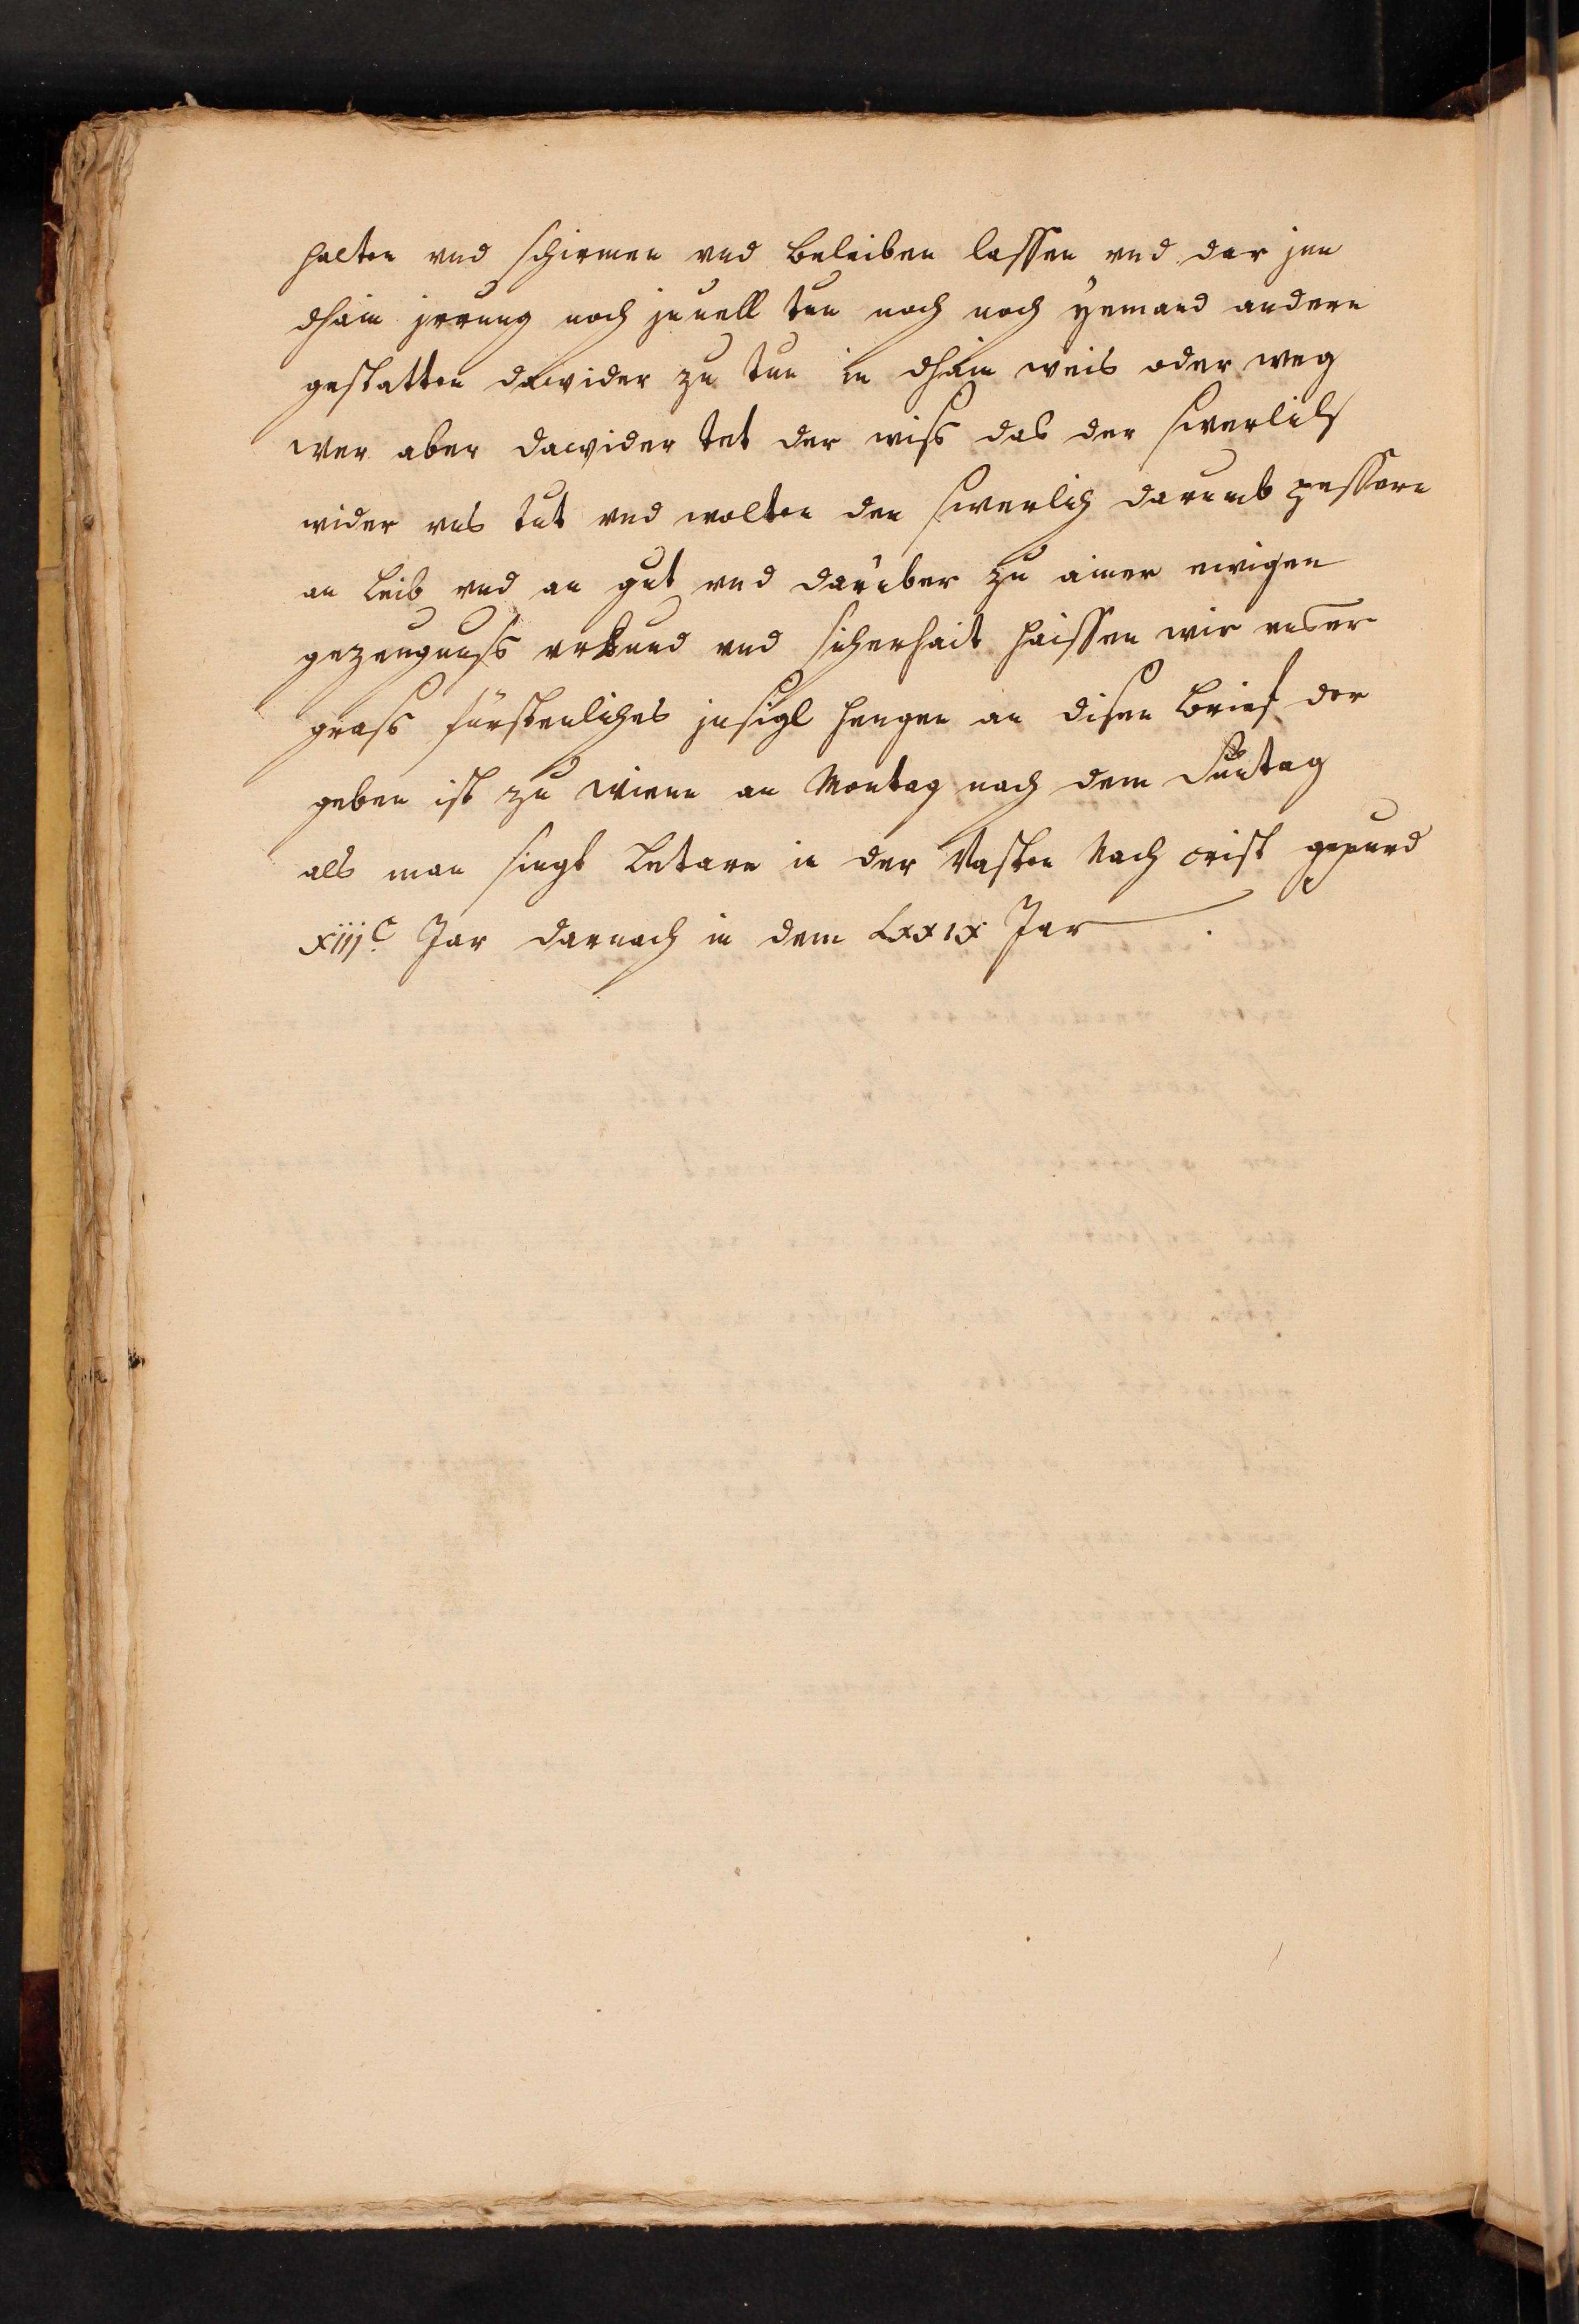 halten vnd schirmen vnd beleiben lassen vnd dar jnn
dhain jrrung noch jnuell tun noch noch yemand andern
gestatten dawider zu tun in dhain weis oder weg
wer aber dawider tet der wiss das der swerlich
wider vns tut vnd wolten den swerlich darumb pessern
an leib vnd an gut vnd darüber zu ainer ewigen
gezeugnuss vrkund vnd sicherhait haissen wir vnser
gross fürstenliches jnsigl hengen an disen brief der
geben ist zu wienn an Montag nach dem Suntag
als man singt letare in der Vasten Nach crist gepurd
xiijᶜ Jar darnach in dem Lxxix Jar